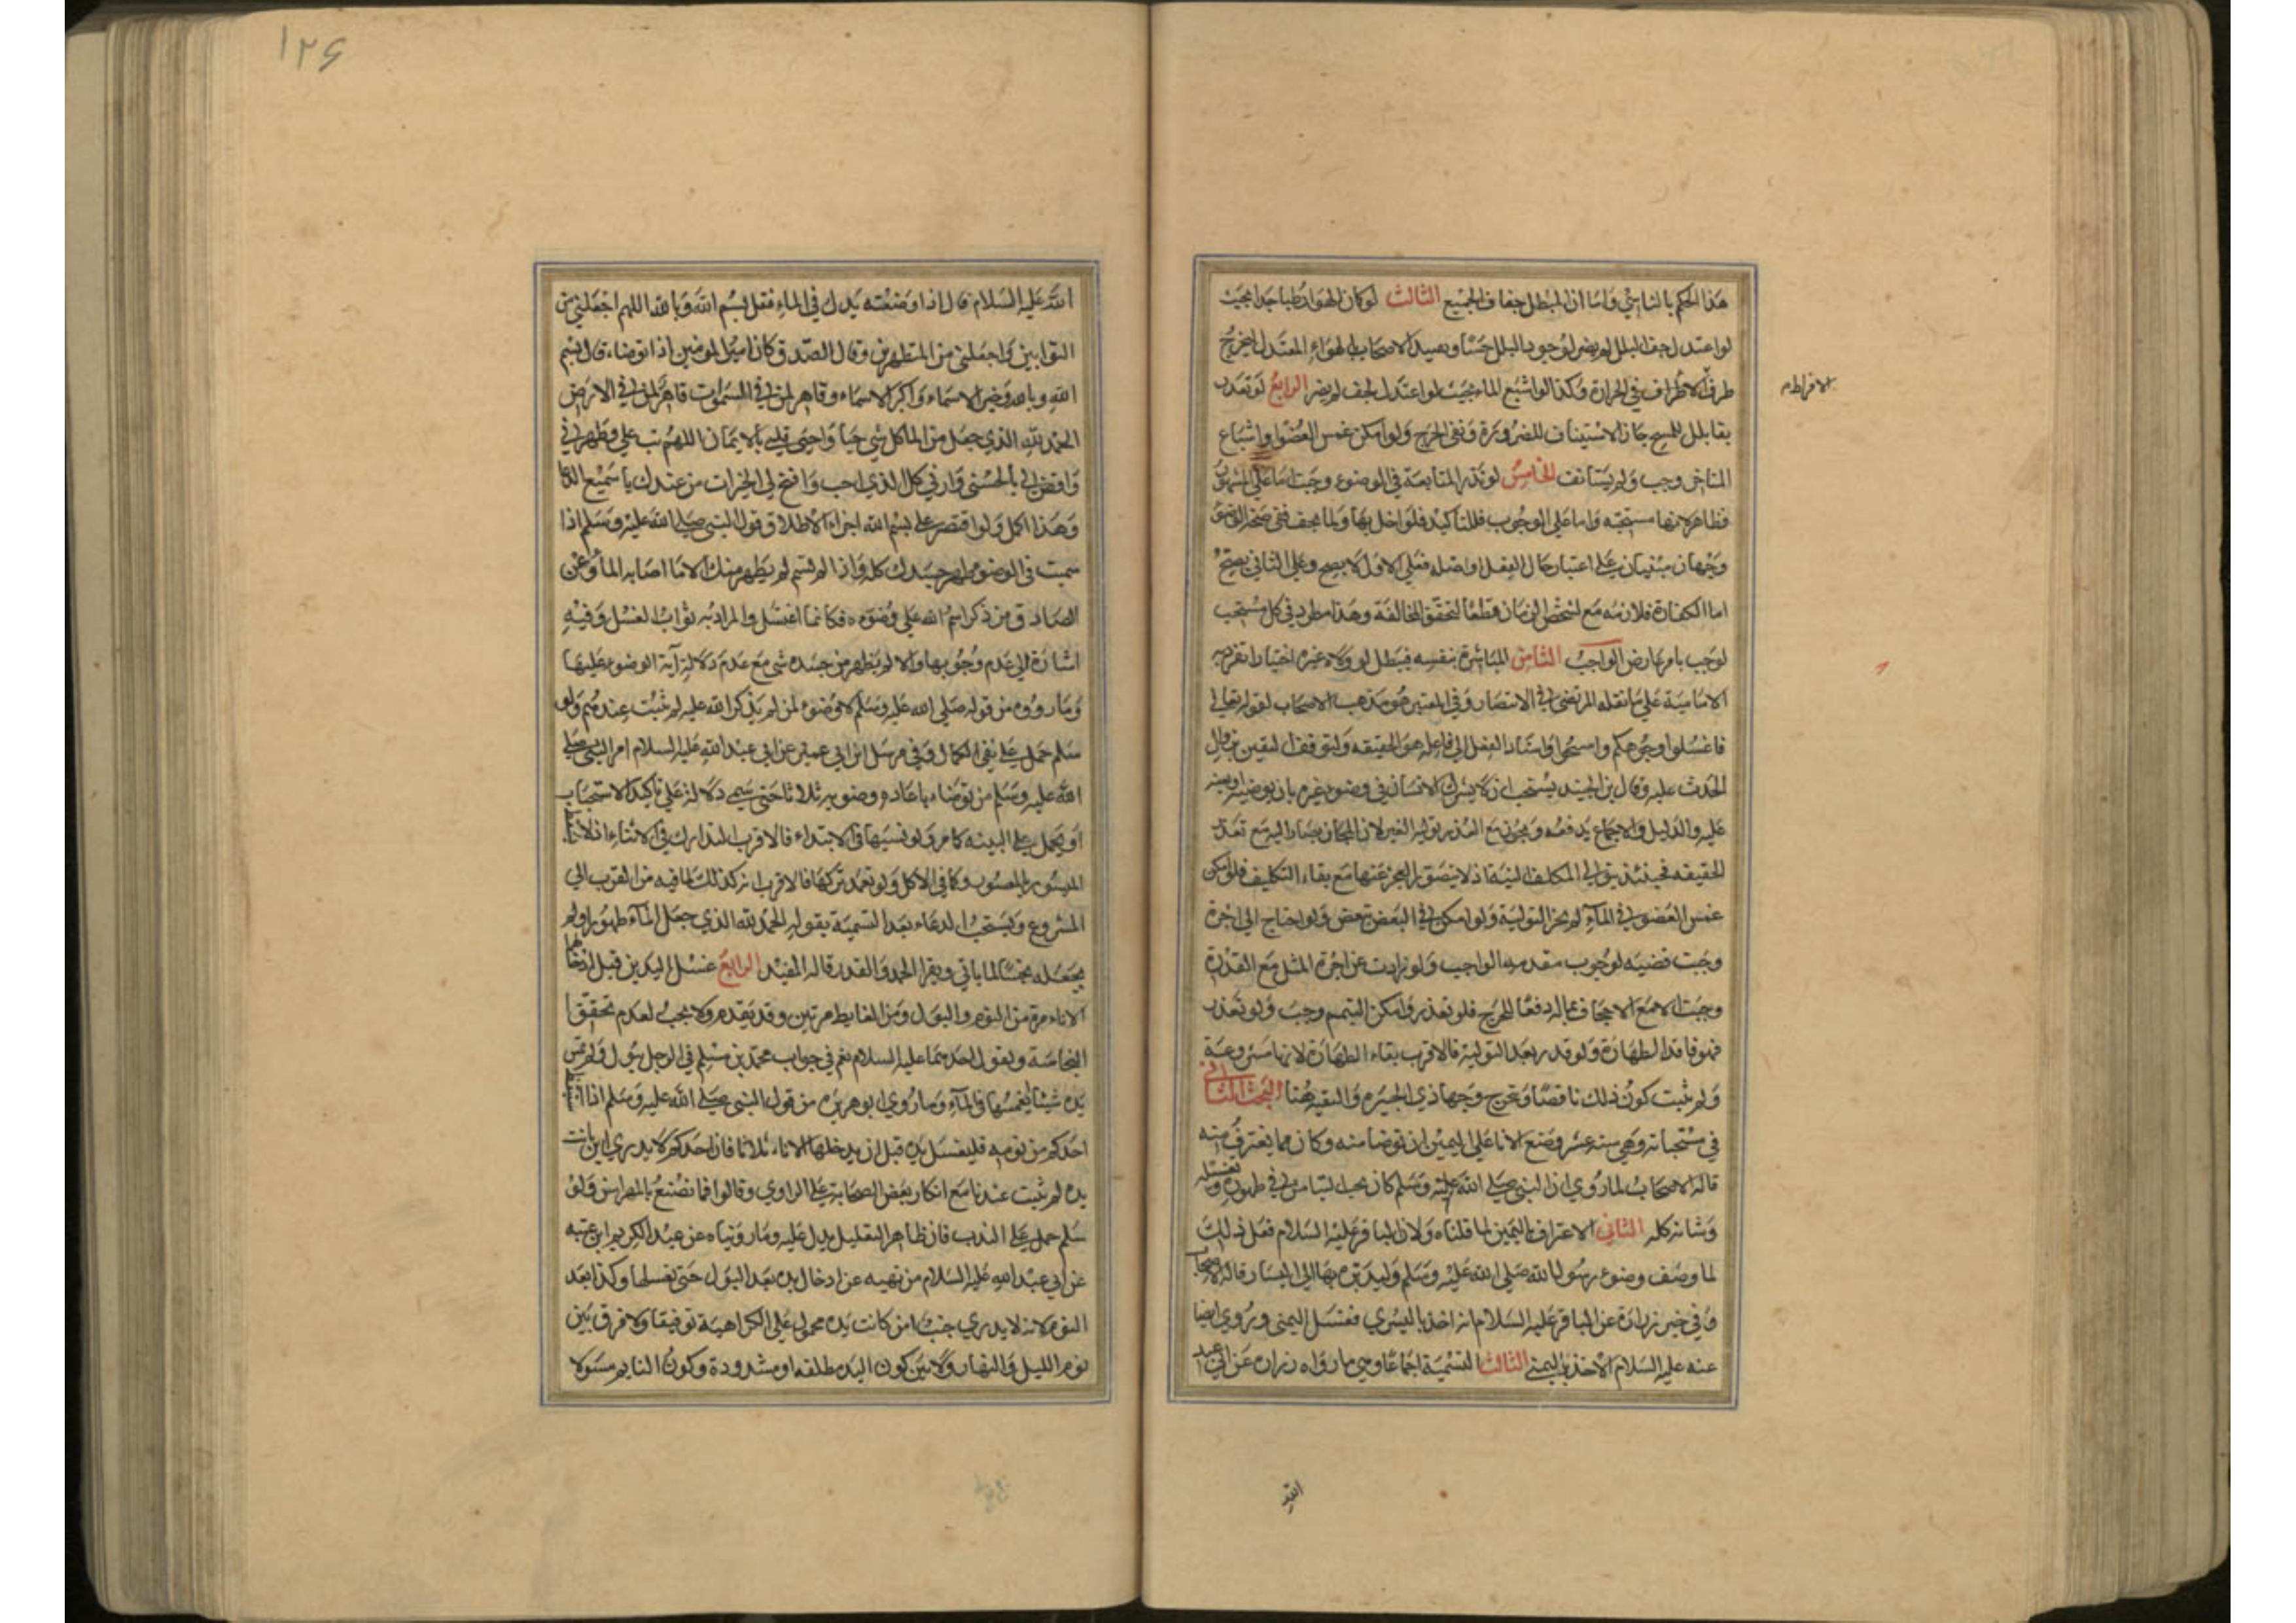 هذا الحكم بالناسي واما ان المبطل جفاف الجميع الثالث لو كان الهواء رطبا جدا بحيث
لو اعتدل لجف البلل لم يضر لوجود البلل حسا وتقييد الاصحاب بالهواء المعتدل ليخرج
طرف الافراط في الحرارة وكذا لو اشبع الماء بحيث لو اعتدل لجف لم يضر الرابع لو تعذر
الافراط م
بقاء بلل للمسح جاز الاستيناف للضرورة ونفي الحرج ولو امكن غمس العضو او اشباع
المتاخر وجب ولم يستانف الخامس لو نذر المتابعة في الوضوء وجبت اما على المشهور
فظاهر لانها مستحبه واما على الوجوب فللتاكيد فلو اخل بها ولما يجف ففي صحة الوضوء
وجهان مبنيان على اعتبار حال الفعل او اصله فعلى الاول لا يصح وعلى الثاني يصح
اما الكفارة فلازمه مع تشخص الزمان قطعا لتحقق المخالفة وهذا مطرد في كل مستحب
لوجب بامر عارض الواجب الثامن المباشرة بنفسه فيبطل لو ولاه غيره اختيارا تفرد به
الامامية على ما نقله المرتضى في الانتصار وفي المعتبر هو مذهب الاصحاب لقوله تعالى
فاغسلوا وجوهكم وامسحوا واسناد الفعل الى فاعله هو الحقيقه ولتوقف اليقين بزوال
الحدث عليه وقال بن الجنيد يستحب ان لا يشرك الانسان في وضوئه غيره بان يوضيه او يعينه
عليه والدليل والاجماع يدفعه ويجوز مع العذر تولية الغير لان المجاز يصار اليه مع تعذر
الحقيقه فحينئذ يتولى المكلف النية اذ لا يتصور العجز عنها مع بقاء التكليف فلو امكن
غمس العضو في الماء لم يجز التولية ولو امكن في البعض تبعض ولو احتاج الى اجرة
وجبت قضيه لوجوب مقدمه الواجب ولو زادت عن اجرة المثل مع القدرة
وجبت الا مع الاجحاف بماله دفعا للحرج فلو تعذر وامكن التيمم وجب ولو تعذر
فهو فاقد الطهارة ولو قدر بعد التولية فالاقرب بقاء الطهارة لانها مشروعة
ولم يثبت كون ذلك ناقضا وتخرج وجها ذي الجبيره والتقية هنا البحث الثاني
في مستحباته وهي سته عشر وضع الانا على اليمين ان توضا منه وكان مما يغترف منه
قاله الاصحاب لما روي ان النبي صلى الله عليه وسلم كان يحب التيامن في طهوره وتنعله
وشانه كله الثاني الاغتراف باليمين لما قلناه ولان الباقر عليه السلام فعل ذلك
لما وصف وضوء رسول الله صلى الله عليه وسلم وليديره بها الى اليسار قاله الاصحاب
وفي خبر زرارة عن الباقر عليه السلام انه اخذ باليسرى فغسل اليمنى وروي ايضا
عنه عليه السلام الاخذ باليمنى الثالث التسمية اجماعا وهي ما رواه زراره عن ابي عبد
الله
١٢٦
الله عليه السلام قال اذا وضعت يدك في الماء فقل بسم الله وبالله اللهم اجعلني من
التوابين واجعلني من المتطهرين وقال الصدوق كان امير المومنين اذا توضاء قال بسم
الله وبالله وخير الاسماء واكبر الاسماء وقاهر لمن في السموات قاهر لمن في الارض
الحمد لله الذي جعل من الما كل شي حيا واحيى قلبي بالايمان اللهم تب علي وطهرني
واقض لي بالحسنى وارني كل الذي احب وافتح لي الخيرات من عندك يا سميع الدعا
وهذا اكمل ولو اقتصر على بسم الله اجزاء لاطلاق قول النبي صلى الله عليه وسلم اذا
سميت في الوضوء طهر جسدك كله واذا لم تسم لم يطهر منك الا ما اصابه الماء وعن
الصادق من ذكر اسم الله على وضوءه فكانما اغتسل والمراد به ثواب الغسل وفيه
اشارة الى عدم وجوبها والا لم يطهر من جسده شي مع عدم دلالة آية الوضوء عليها
وما رووه من قوله صلى الله عليه وسلم لا وضوء لمن لم يذكر الله عليه لم يثبت عندهم ولو
سلم حمل على نفي الكمال وفي مرسل ابن ابي عمير عن ابي عبد الله عليه السلام امر النبي صلى
الله عليه وسلم من توضاء باعاده وضوئه ثلاثا حتى سمى دلالة على تاكيد الاستحباب
او يحمل على النيه كما مر ولو نسيها في الابتداء فالاقرب التدارك في الاثناء اذ لا
الميسور بالمعسور وكما في الاكل ولو تعمد تركها فالاقرب انه كذلك لما فيه من القرب الى
المشروع ويستحب الدعاء بعد التسمية بقوله الحمد لله الذي جعل الماء طهورا ولم
يجعله نجسا لما ياتي ويقرا الحمد والقدر قاله المفيد الرابع غسل اليدين قبل ادخالهما
الاناء مرة من النوم والبول ومن الغايط مرتين وقد تقدم ولا يجب لعدم تحقق
النجاسة ولقول احدهما عليه السلام نعم في جواب محمد بن مسلم في الرجل يبول ولم يمس
يده شيئا ايغمسها في الماء وما روي ابو هريره من قول النبي صلى الله عليه وسلم اذا
احدكم من نومه فليغسل يده قبل ان يدخلها الاناء ثلاثا فان احدكم لا يدري اين باتت
يده لم يثبت عندنا مع انكار بعض الصحابة على الراوي وقالوا فما نصنع بالمهراس ولو
سلم حمل على الندب فان ظاهر التعليل يدل عليه وما رويناه عن عبد الكريم ابن عتبه
عن ابي عبد الله عليه السلام من نهيه عن ادخال يده بعد البول حتى يغسلها وكذا بعد
النوم لانه لا يدري حيث كانت يده محمول على الكراهية توفيقا ولا فرق بين
نوم الليل والنهار ولا بين كون اليد مطلقه او مشدودة وكون النايم مسرولا